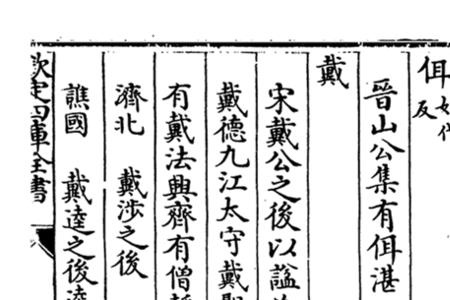 佴
晉山公集有佴湛
戴
宋戴公之後以諡
戴德九江太守戴
有戴法興齊有僧
濟北 戴渉之後
譙國 戴逵之後逵
欽定四庫全書